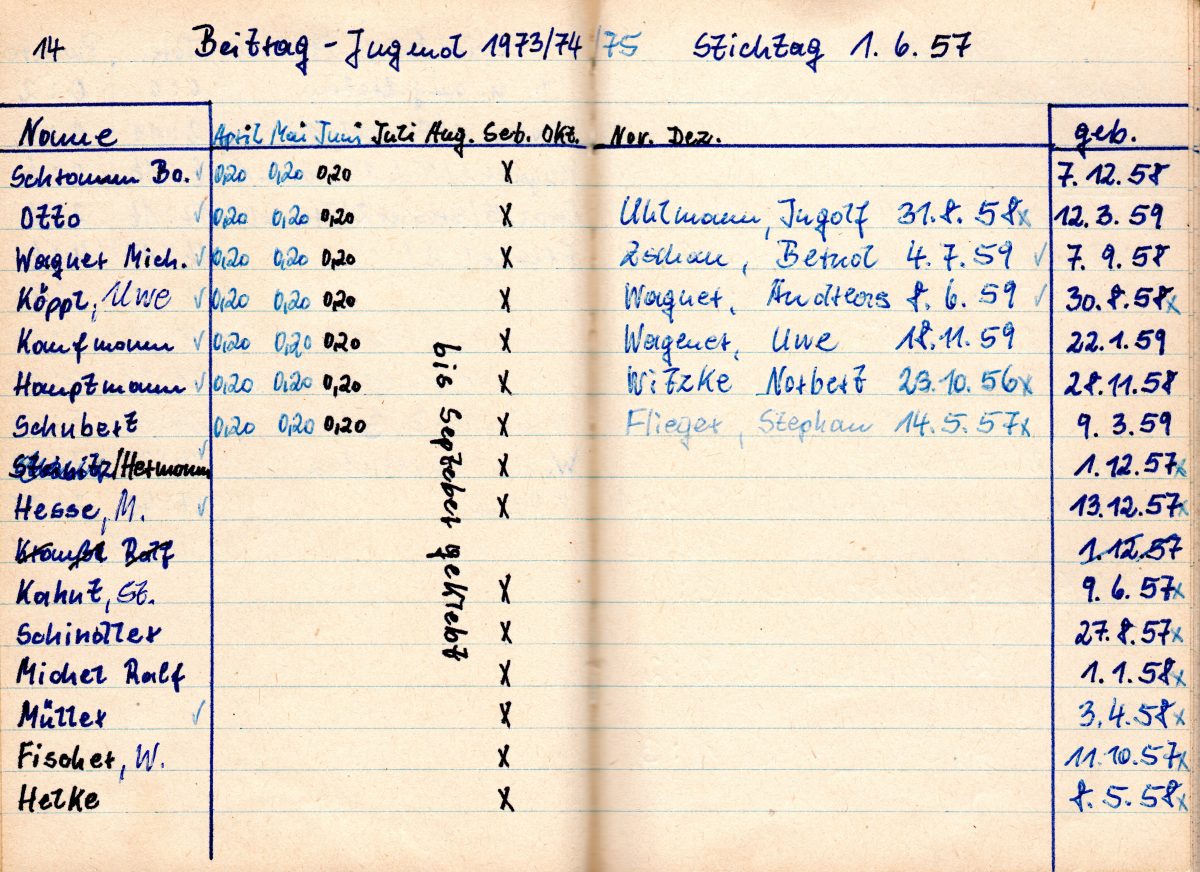 14 Beitrag - Jugend 1973/74/75 Stichtag 1. 6. 57
Name April Mai Juni Juli Aug. Seb. Okt. Nov. Dez. geb.
Schramm Bo. ✓ 0,20 0,20 0,20 X 7. 12. 58
Otto ✓ 0,20 0,20 0,20 X Uhlmann, Ingolf 31. 8. 58x 12. 3. 59
Wagner Mich. ✓ 0,20 0,20 0,20 X Zschau, Bernd 4. 7. 59 ✓ 7. 9. 58
Köppl, Uwe ✓ 0,20 0,20 0,20 X Wagner, Andreas 8. 6. 59 ✓ 30. 8. 58x
Kaufmann ✓ 0,20 0,20 0,20 X Wagener, Uwe 18. 11. 59 22. 1. 59
Hauptmann ✓ 0,20 0,20 0,20 X Witzke Norbert 23. 10. 56x 28. 11. 58
Schubert 0,20 0,20 0,20 X Flieger, Stephan 14. 5. 57x 9. 3. 59
/Hermann ✓ X 1. 12. 57x
Hesse, M. ✓ X 13. 12. 57x
Krauße Ralf 1. 12. 57
Kahnt, St. X 9. 6. 57x
Schindler X 27. 8. 57x
Michel Ralf X 1. 1. 58x
Müller ✓ X 3. 4. 58x
Fischer, W. X 11. 10. 57x
Helke X 8. 5. 58x
bis Septeber geklebt